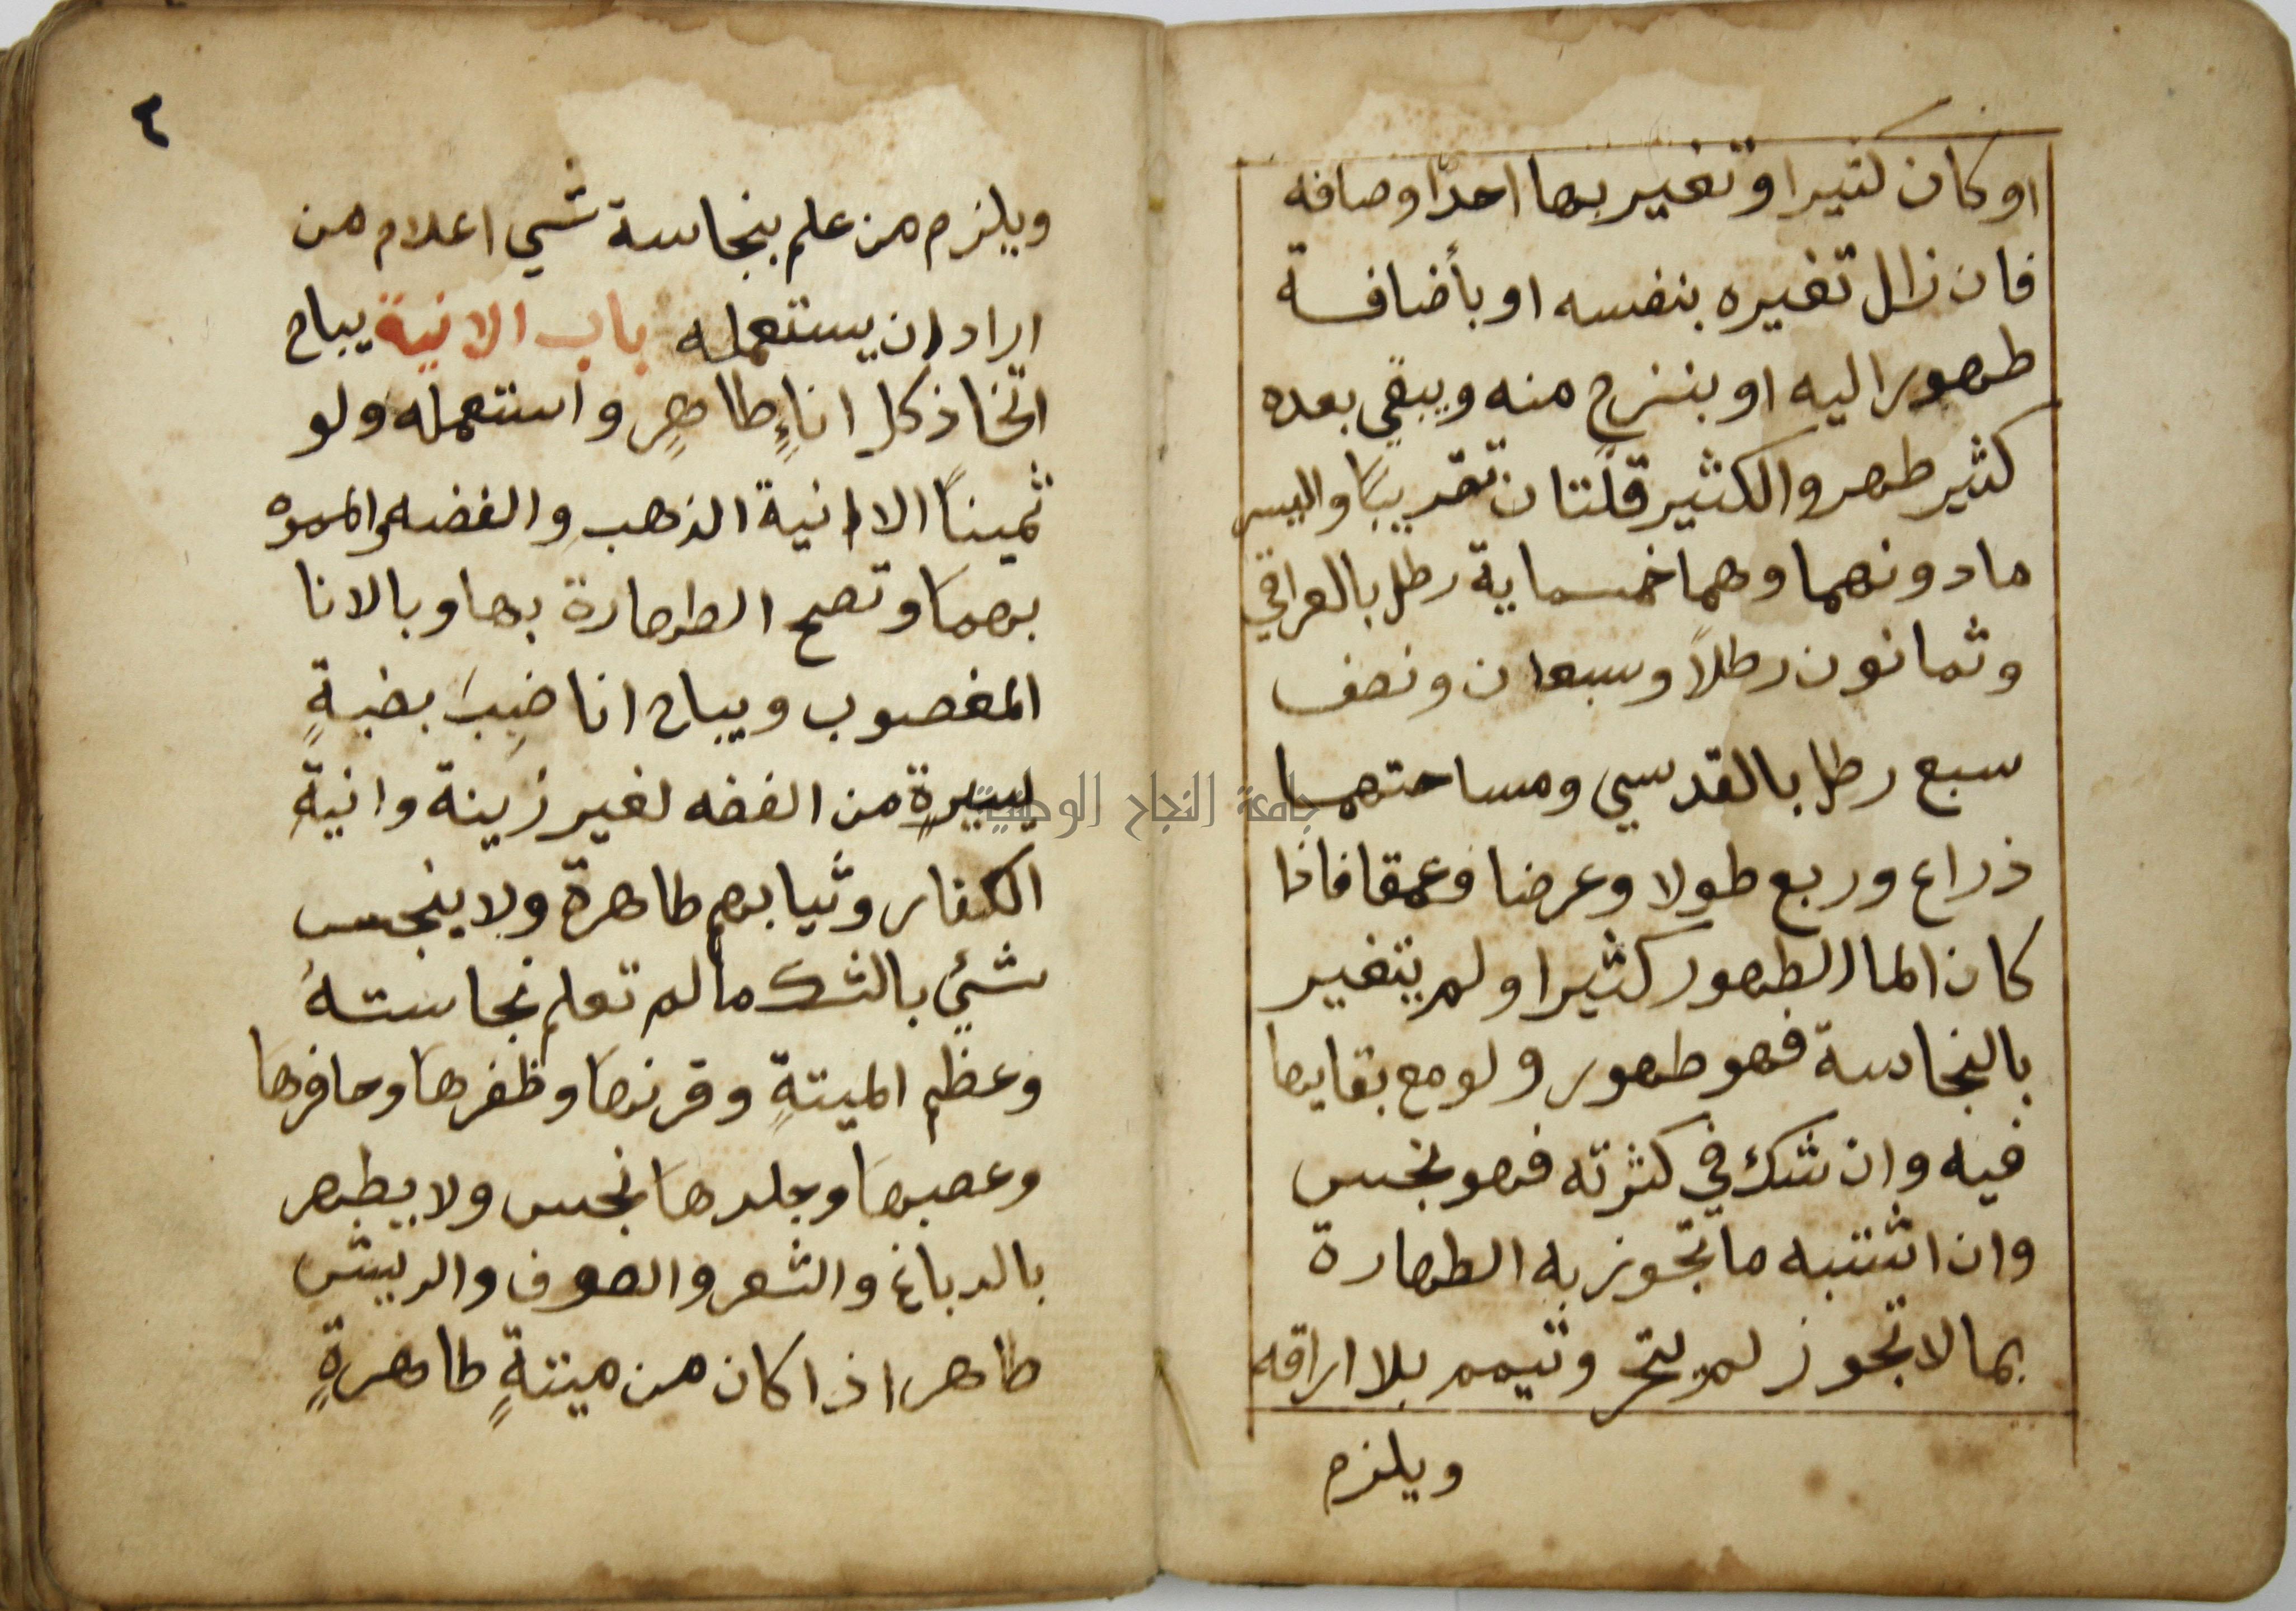 او كان كثيرا وتغير بها احد اوصافه
فان زال تغيره بنفسه او بأضافة
طهور اليه او بنزح منه ويبقي بعده
كثير طهر والكثير قلتان تقريبًا واليسير
مادونهما وهما خمسماية رطل بالعراقي
وثمانون رطلاً وسبعان ونصف
سبع رطل بالقدسي ومساحتهما
ذراع وربع طولا وعرضا وعمقا فاذا
كان الما الطهور كثيرا ولم يتغير
بالنجاسة فهو طهور ولو مع بقايها
فيه وان شك في كثرته فهو نجس
وان اشتبه ما تجوز به الطهارة
بما لا تجوز لم يتحر وتيمم بلا اراقه
ويلزم
٤
ويلزم من علم بنجاسة شي اعلام من
اراد ان يستعمله باب الانية يباح
اتخاذ كل اناءٍ طاهرٍ واستعمله ولو
ثمينًا الا انية الذهب والفضه والمموه
بهما وتصح الطهارة بها وبالانا
المغصوب ويباح انا ضبب بضبةٍ
يسيرةٍ من الفضه لغير زينة وانيةِ
الكفار وثيابهم طاهرة ولا ينجس
شئي بالشك مالم تعلم نجاستهُ
وعظم الميتةِ وقرنها وظفرها وحافرها
وعصبها وجلدها نجس ولا يطهر
بالدباغ والشعر والصوف والريش
طاهر اذا كان من ميتةٍ طاهرةٍ
جامعة النجاح الوطنية